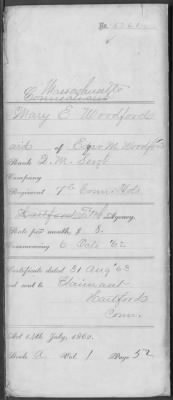 No.
Massachusetts
Connecticut
Mary E. Woodford
wid of Edgar M. Woodford
Rank Q. M. Sergt
Company
Regiment 7th Conn. Vols.
Hartford Agency.
Rate per month, $ 8.
Commencing 6 Oct. '62
Certificate dated 31 Aug '63
and sent to Claimant
Hartford
Conn.
Act 14th July, 1862.
Book A. Vol. 1 Page 52